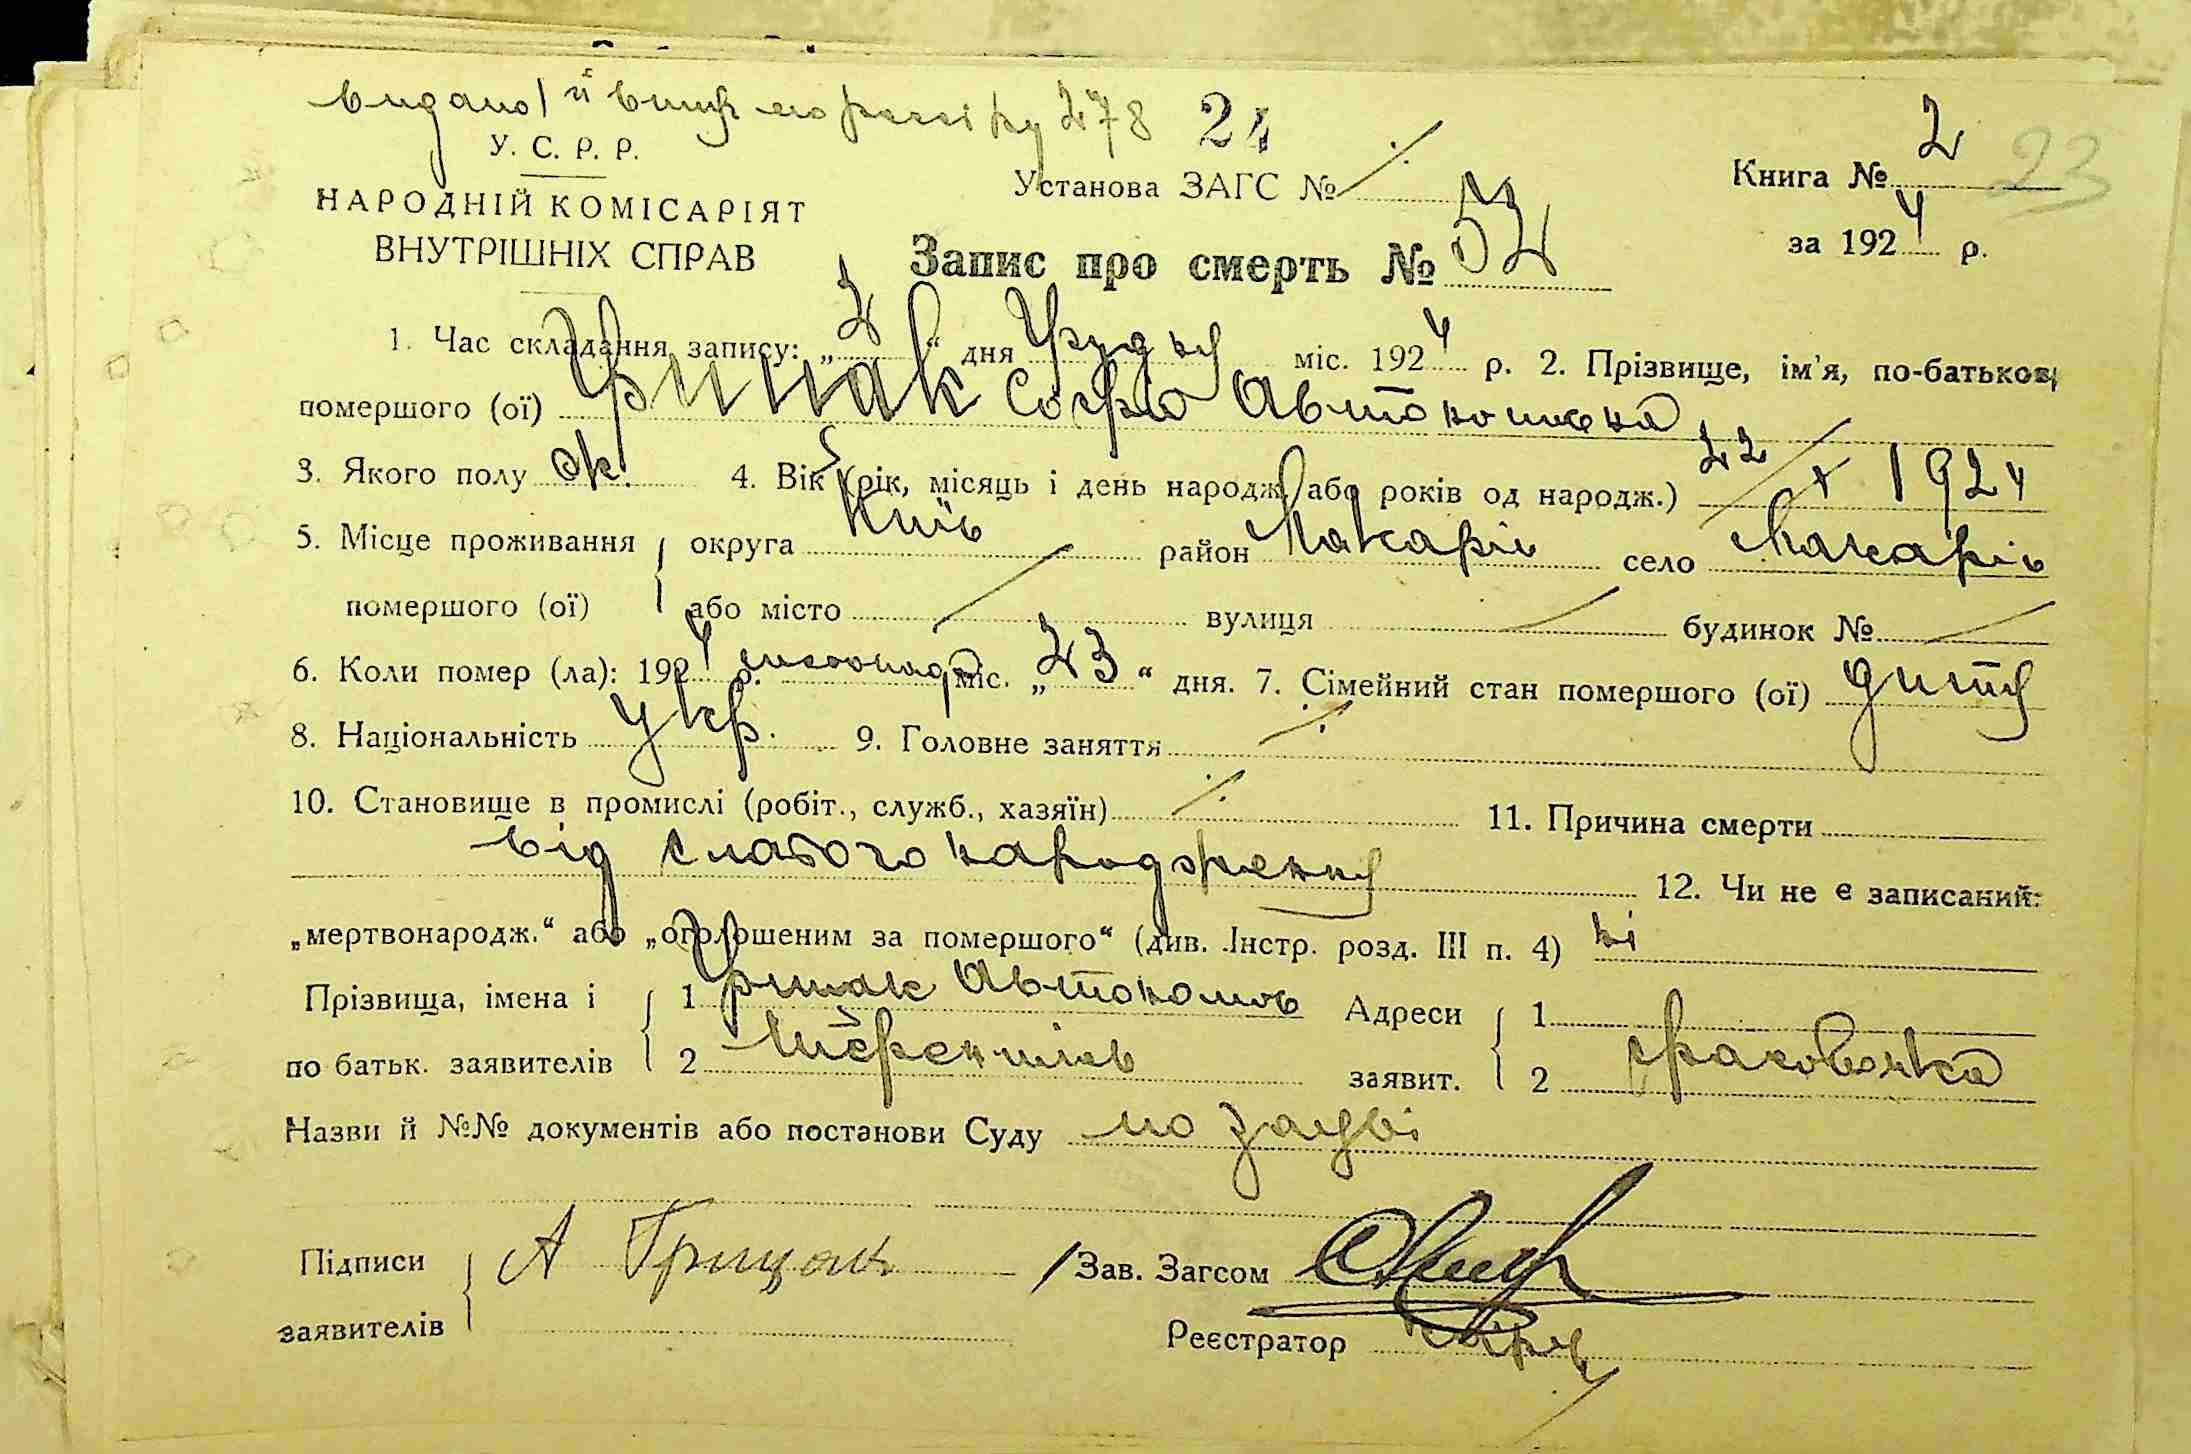 видано й виписку по реєстру 278 24
У. С. Р. Р.
Установа ЗАГС № ⁒
Книга № 2 23
НАРОДНІЙ КОМІСАРІЯТ
ВНУТРІШНІХ СПРАВ
за 1924 р.
Запис про смерть № 52
1. Час складання запису: „2“ дня Грудня міс. 1924 р. 2. Прізвище, ім'я, по-батькові
помершого (ої) Грицак Софія Автономівна
3. Якого полу ж. 4. Вік (рік, місяць і день народж. або років од народж.) 22/X 1924
5. Місце проживання округа Київ район Макарів село Макарів
помершого (ої) або місто вулиця будинок №
6. Коли помер (ла): 1924 р. листопад міс. „23“ дня. 7. Сімейний стан помершого (ої) дитя
8. Національність укр. 9. Головне заняття ⁒
10. Становище в промислі (робіт., служб., хазяїн) ⁒ 11. Причина смерти
від слабого народження 12. Чи не є записаний:
„мертвонародж.“ або „оголошеним за помершого“ (див. Інстр. розд. III п. 4) ні
Прізвища, імена і 1 Грицак Автоном Адреси 1
по батьк. заявителів 2 заявит. 2
Назви й №№ документів або постанови Суду по заяві
Підписи А Грицак Зав. Загсом
заявителів Реєстратор